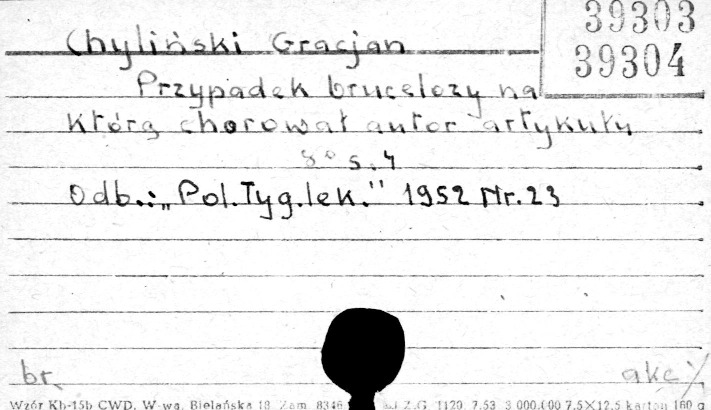 39303
39304
Chyliński Gracjan
Przypadek brucelozy na
którą chorował autor artykułu
8° s. 4
Odb.: „Pol.Tyg.lek." 1952 Nr. 23
br. akc
Wzór Kb-15b CWD, W-wa, Bielańska 18 Zam. 8346 Z.G. 1120 7.53 3.000.000 7,5×12,5 karton 160 g